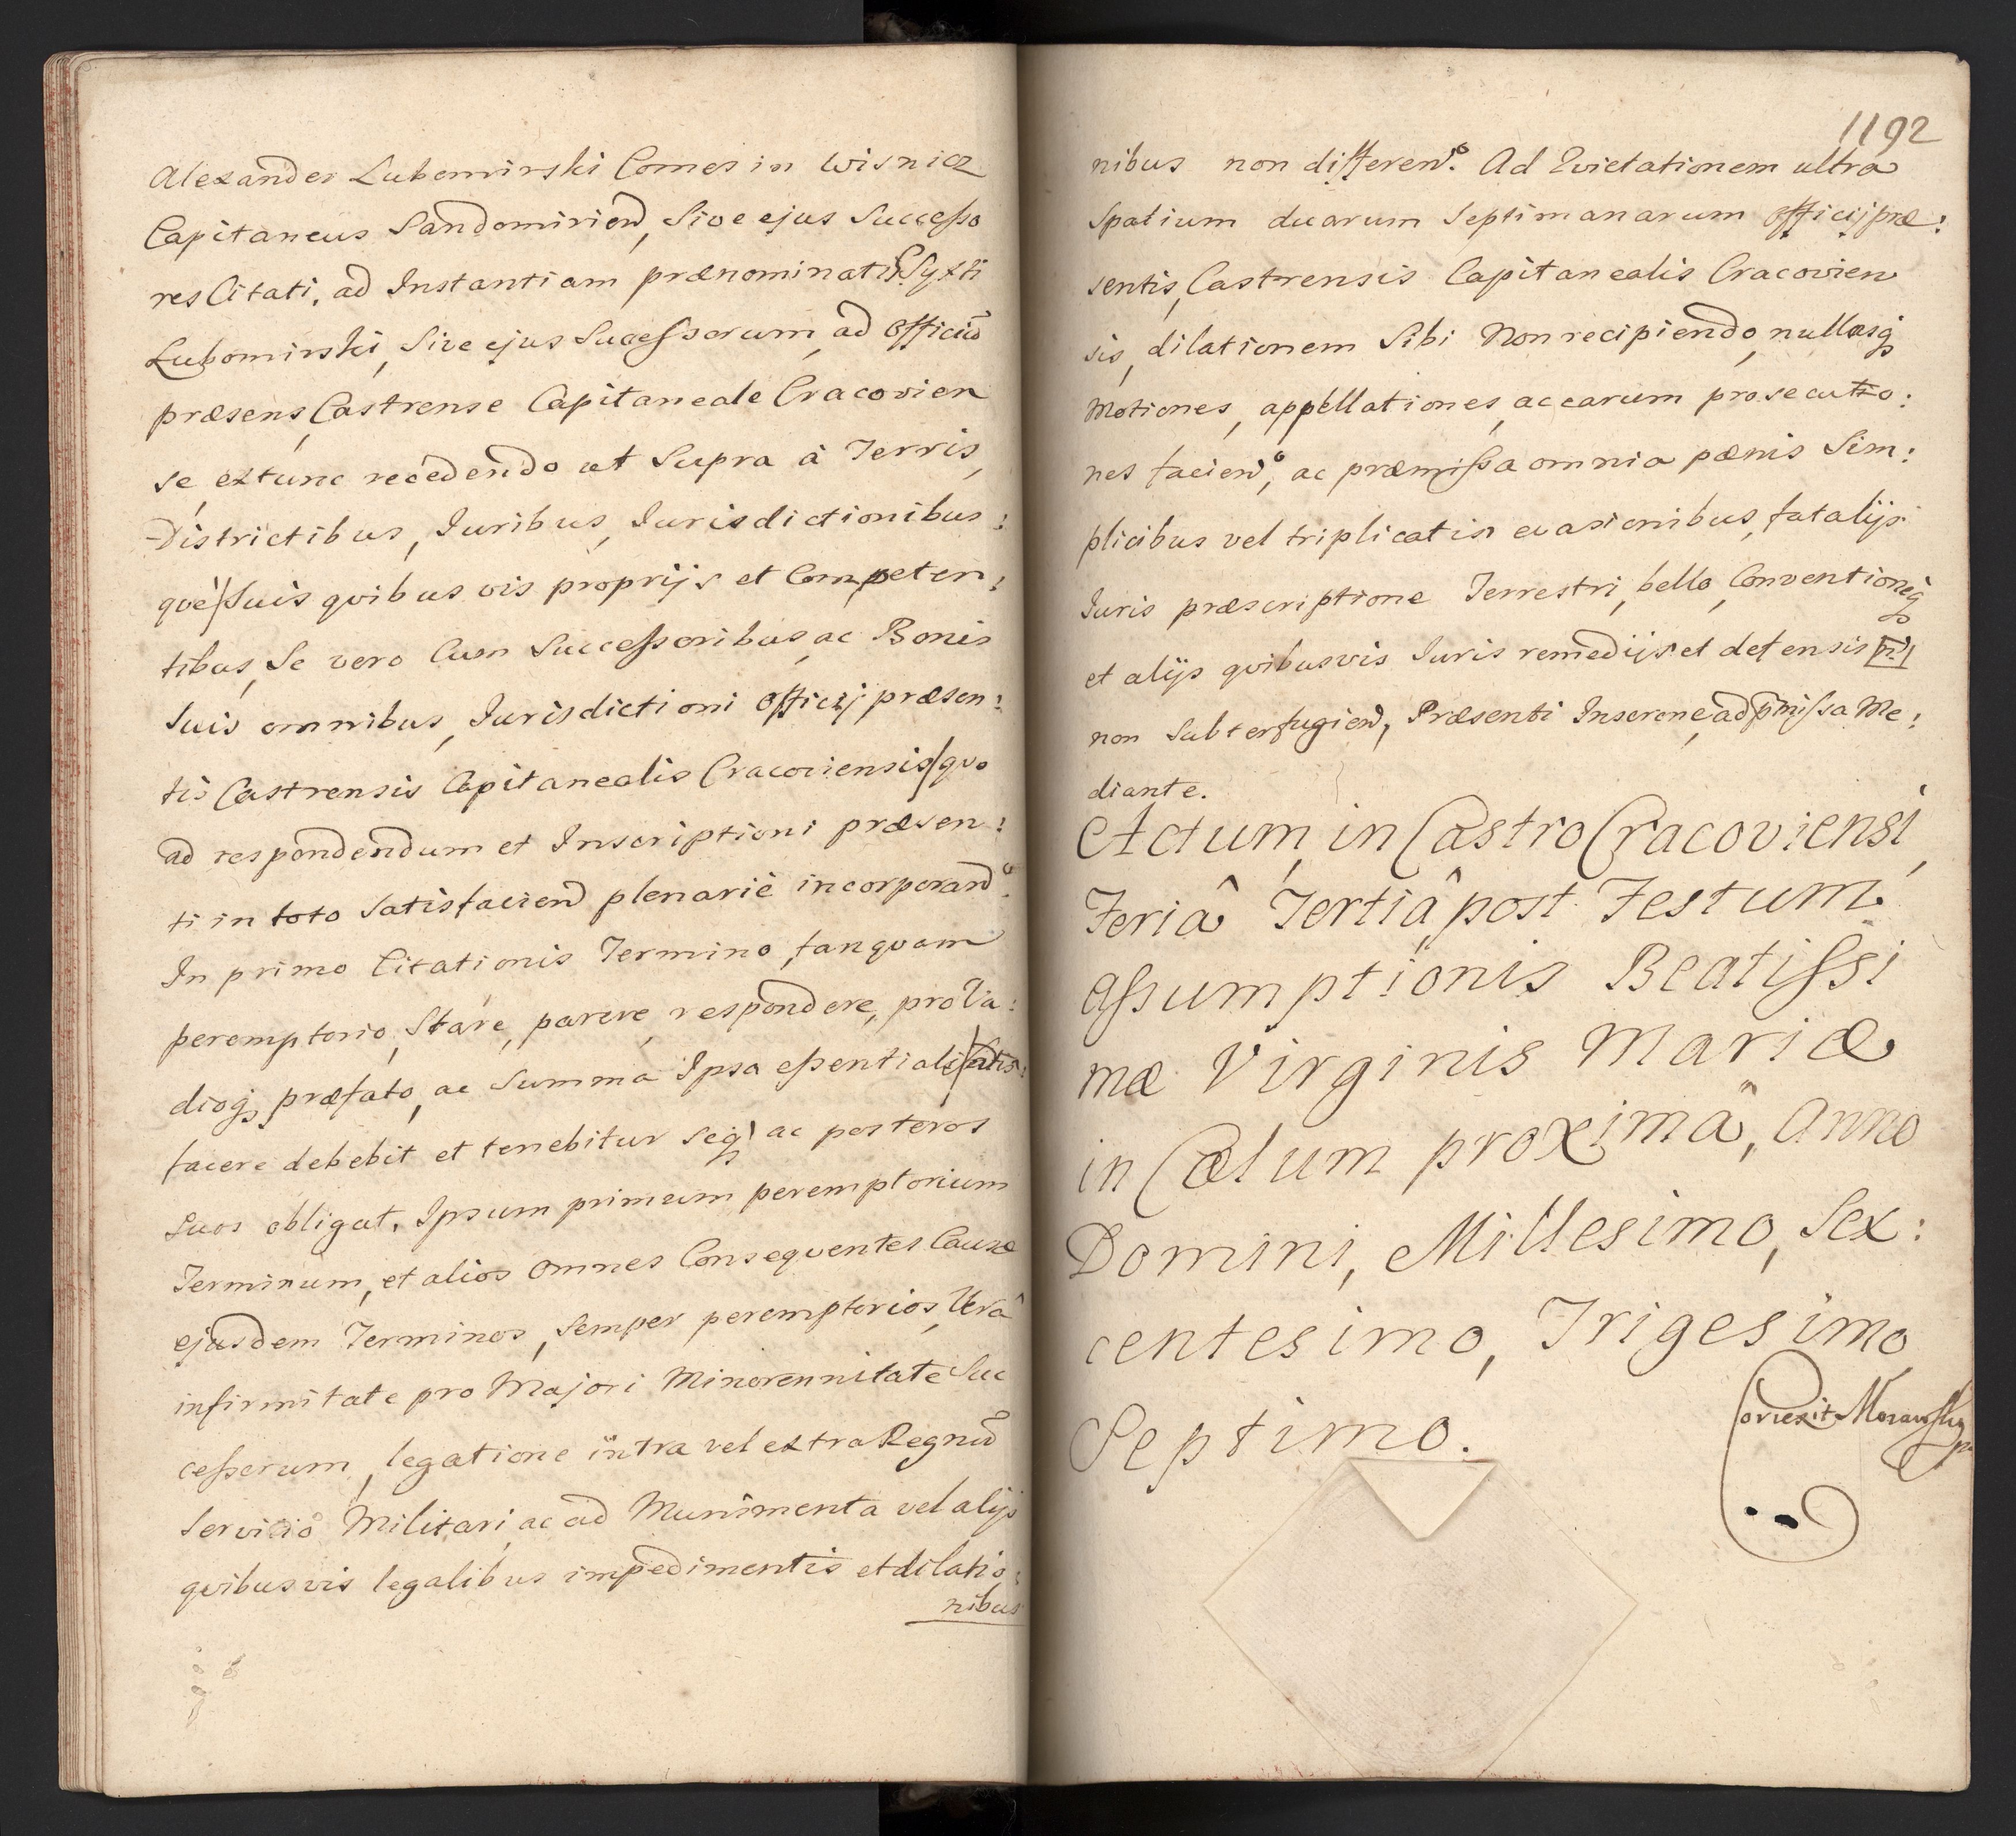 Alexander Lubomirski Comes in Wisnicz
Capitaneus Sandomirien, Sive ejus Successo
res Citati, ad Instantiam prænominati Syxti
Lubomirski, Sive ejus Sucessorum, ad Officiū
præsens, Castrense Capitaneale Cracovien
se, extunc recedendo ut Supra à Terris,
Districtibus, Juribus, Jurisdictionibus:
què Suis qvibus vis proprijs et Competen:
tibus, Se vero Cum Successoribus, ac Bonis
Suis omnibus, Jurisdictioni Officij præsen:
tis Castrensis Capitanealis Cracoviensis qvo
ad respondendum et Inscriptioni præsen:
ti in toto Satisfaciend plenariè incorporando.
In primo Citationis Termino, tanqvam
peremptorio, Stare, parere, respondere, pro Va:
dioq, præfato, ac Summa Ipsa essentiali Satis:
facere debebit et tenebitur Seq ac posteros
Suos obligat. Ipsum primum peremptorium
Terminum, et alios Omnes Conseqventes Causæ
ejusdem Terminos, Semper peremptorios, Verâ
infirmitate pro Majori Minorennitate Suc
cessorum, legatione intra vel extra Regnū
Servitio Militari, ac ad Munimenta vel alijs
qvibusvis legalibus impedimentis et dilatio:
nibus
1192
nibus non differendo. Ad Evictationem ultra
Spatium duarum Septimanarum Officij præ:
sentis, Castrensis Capitanealis Cracovien
sis, dilationem Sibi Non recipiendo, nullasq,
Motiones, appellationes, ac earum prosecutio:
nes faciendo, ac præmissa omnia pænis Sim:
plicibus vel triplicatis evasionibus, fatalijs
Juris præscriptione Terrestri, bello, Conventioneq,
et alijs qvibusvis Juris remedijs et defensis
non Subterfugiend, Præsenti Inscrcne, ad pmissa Me:
diante.
Actum, in Castro Cracoviensi,
Feriâ Tertiâ post Festum
Assumptionis Beatissi
mæ Virginis Mariæ
in Cælum proximâ, Anno
Domini, Millesimo, Sex:
centesimo, Trigesimo
Septimo.
Correxit Morawsky